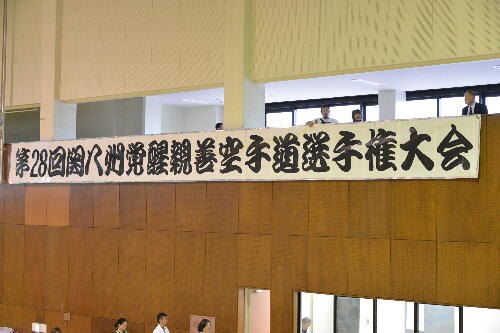 第28回関八州覚醒親善空手道選手権大会